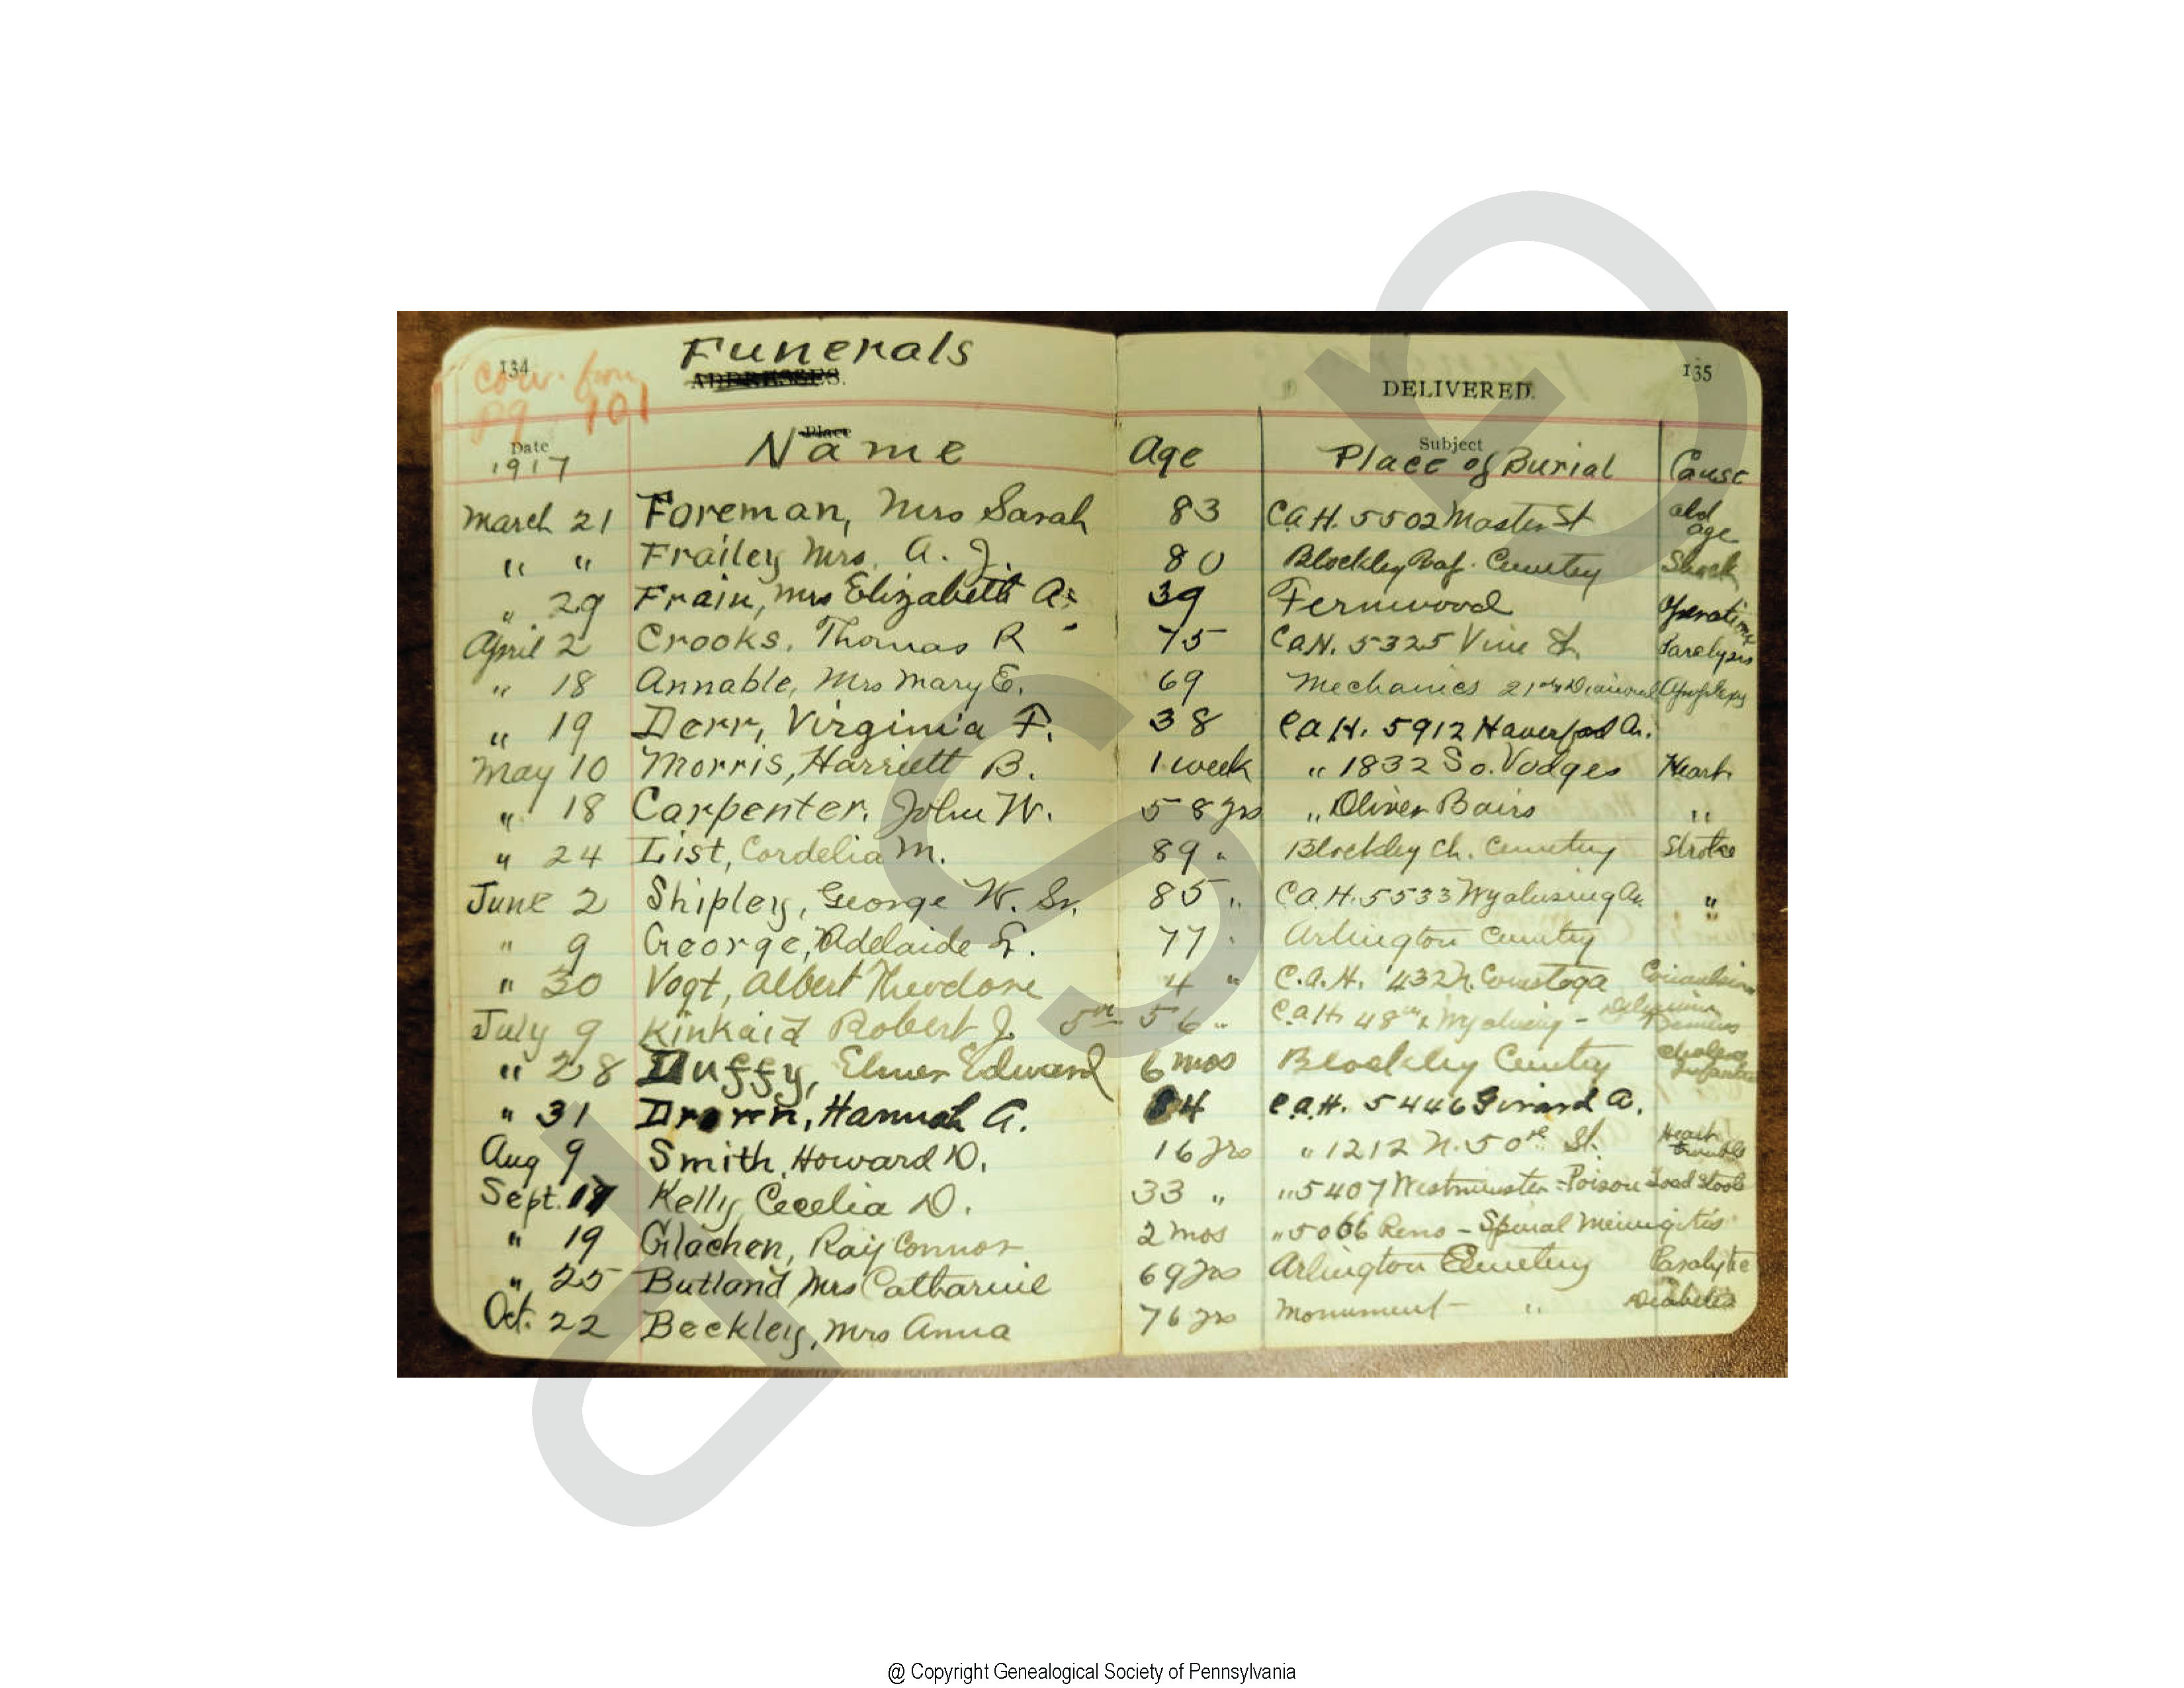 134 Funerals
ADDRESSES.
con. from
pg 101
DELIVERED. 135
Date Place Subject
1917 Name Age Place of Burial Cause
March 21 Foreman, Mrs Sarah 83 C.a.H. 5502 Master St old age
" " Frailey Mrs. A. J. 80 Blockley Bap. Cemetery Shock
" 29 Frain, Mrs Elizabeth A. 39 Fernwood Operation
April 2 Crooks, Thomas R 75 C.a.H. 5325 Vine St. Paralysis
" 18 Annable, Mrs Mary E. 69 Mechanics 21st & Diamond Apoplexy
" 19 Derr, Virginia F. 38 C.a.H. 5912 Haverford Av.
May 10 Morris, Harriett B. 1 week " 1832 So. Vodges Heart
" 18 Carpenter, John W. 58 yrs " Oliver Bairs "
" 24 List, Cordelia M. 89 " Blockley Ch. Cemetery Stroke
June 2 Shipley, George W. Sr. 85 " C.a.H. 5533 Wyalusing Av. "
" 9 George, Adelaide L. 77 " Arlington Cemetery
" 30 Vogt, Albert Theodore 4 " C.a.H. 432 N. Conestoga Convulsion
July 9 Kinkaid Robert J. 56 " C.a.H. 48th &
" 28 Duffy, Elmer Edward 6 mos Blockley Cemetery Cholera Infantum
" 31 Drown, Hannah A. 84 C.a.H. 5446 Girard A.
Aug 9 Smith, Howard D. 16 yrs " 1212 N. 50th St. Heart trouble
Sept. 17 Kelly, Cecelia D. 33 " " 5407 Westminster - Poison toad stools
" 19 Glachen, Ray Connor 2 mos " 5066 Reno - Spinal Meningitis
" 25 Butland Mrs Catharine 69 yrs Arlington Cemetery Paralytic
Oct. 22 Beckley, Mrs Anna 76 yrs Monument - " Diabetis
GSP
@ Copyright Genealogical Society of Pennsylvania